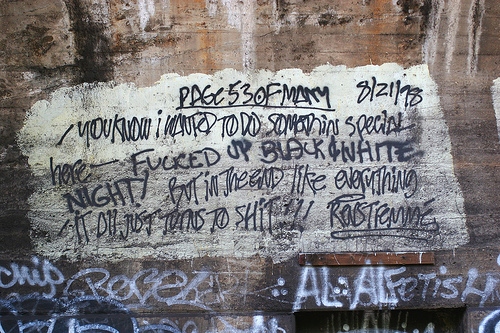 PAGE 53 OF MANY 8/21/98
YOU KNOW i WANTED TO DO SOMETHIN SPECIAL
here — FUCKED UP BLACK & WHITE
NIGHT! BUT IN THE END like everything
IT all JUST TURNS TO SHIT!!!
chip AL: AL